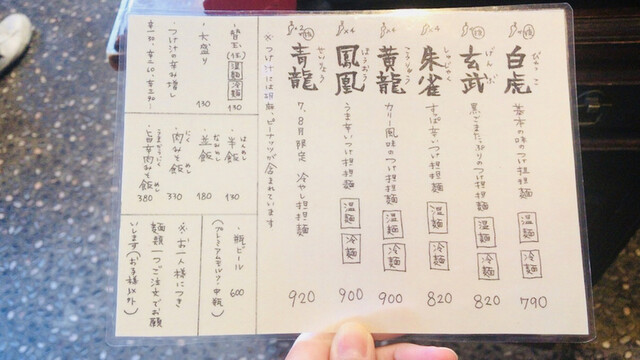 白虎
びゃっこ
基本の味のつけ担担麺
温麺
冷麺
790
玄武
げんぶ
黒ごまたっぷりのつけ担担麺
温麺
冷麺
820
朱雀
すじゃく
すぱ辛いつけ担担麺
温麺
冷麺
820
黄龍
こうりゅう
カリー風味のつけ担担麺
温麺
冷麺
900
鳳凰
ほうおう
うま辛いつけ担担麺
温麺
冷麺
900
青龍
せいりゅう
7、8月限定 冷やし担担麺
920
※つけ汁には胡麻、ピーナッツが含まれています
・替玉(1ヶ) 温麺 冷麺
130
・大盛り
130
・つけ汁の辛み増し
・半飯
はんめし
130
・並飯
なみめし
180
・肉みそ飯
にく めし
330
・旨辛肉みそ飯
うまからにく めし
380
・瓶ビール
600
(プレミアムモルツ・中瓶)
※お一人様につき
麺類一つご注文でお願
いします(お子様以外)